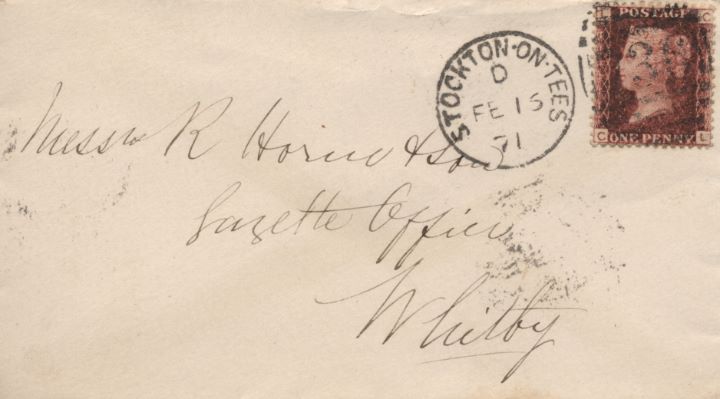 POSTAGE
L C
STOCKTON-ON-TEES
D
FE 15
71
C ONE PENNY L
Messrs R Horne & Son
Gazette Office
Whitby